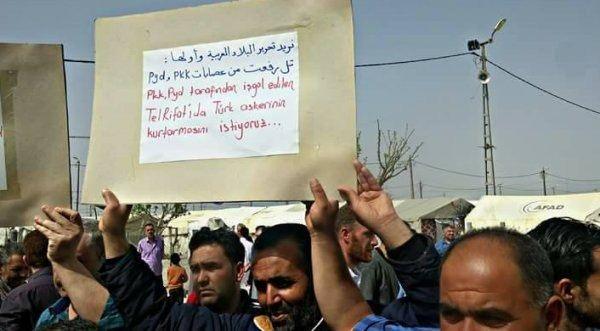 نريد تحرير البلاد العربية وأولها :
تل رفعت من عصابات PKK ,Pyd
Pkk,Pyd tarafından işgal edilen
TelRifat'ida Türk askerinin
kurtarmasını istiyoruz...
AFAD